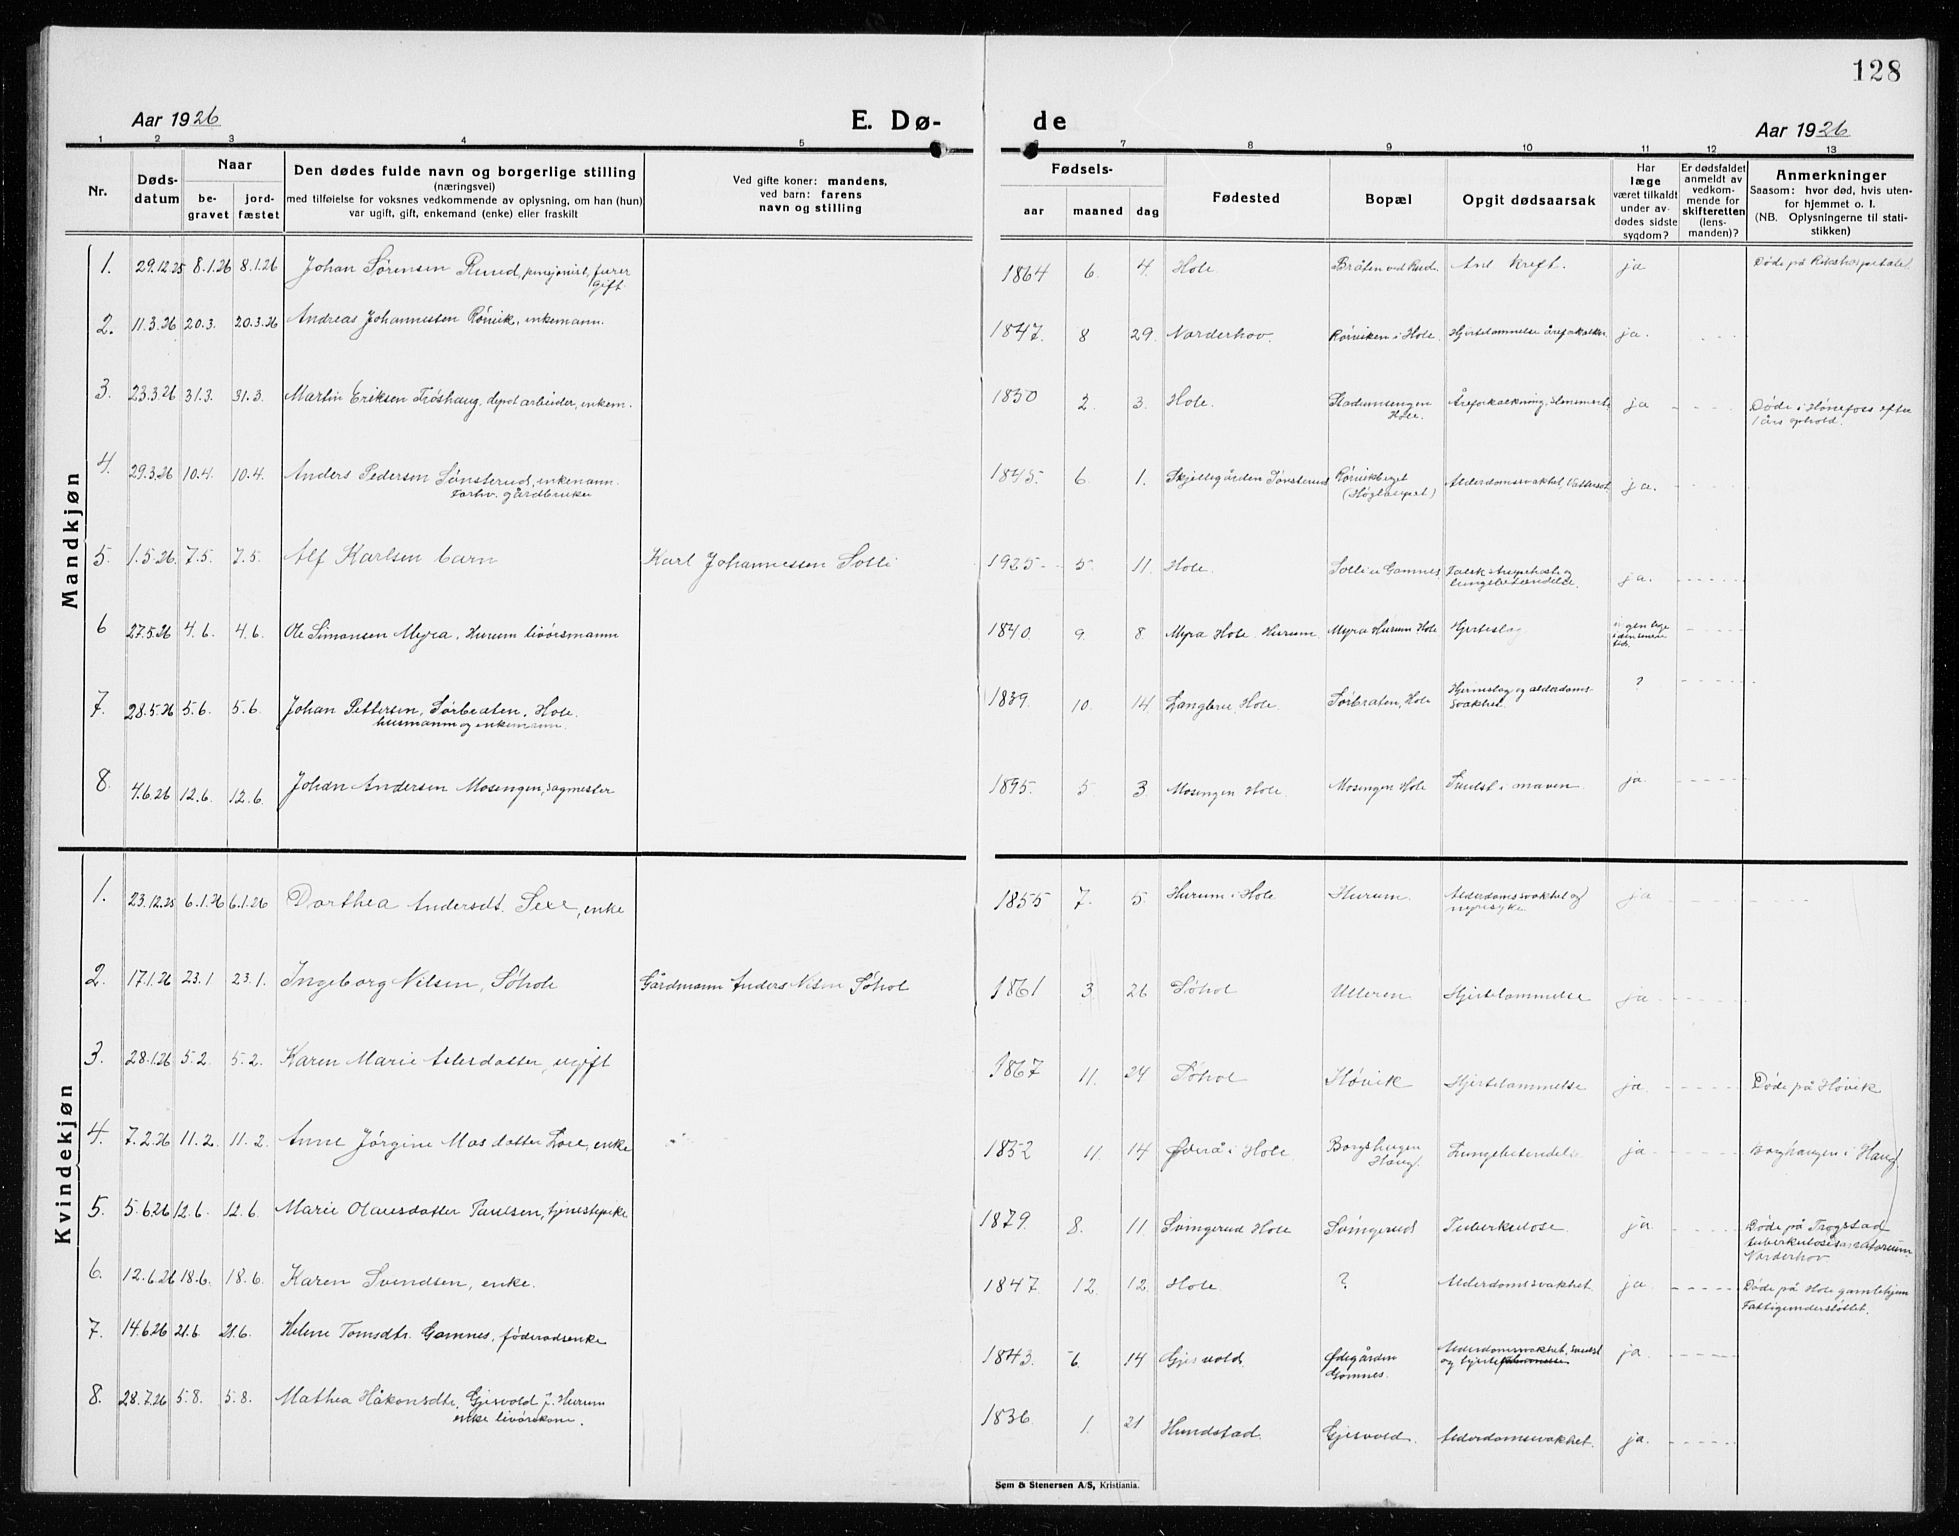 128
Aar 1926 E. Dø- de Aar 1926
1 2 3 4 5 7 8 9 10 11 12 13
Nr. Døds-datum Naar begravet jordfæstet Den dødes fulde navn og borgerlige stilling (næringsvei) med tilføielse for voksnes vedkommende av oplysning, om han (hun) var ugift, gift, enkemand (enke) eller fraskilt Ved gifte koner: mandens, ved barn: farens navn og stilling Fødsels- aar maaned dag Fødested Bopæl Opgit dødsaarsak Har læge været tilkaldt under avdødes sidste sygdom? Er dødsfaldet anmeldt av vedkommende for skifteretten (lensmanden)? Anmerkninger Saasom: hvor død, hvis utenfor hjemmet o. l. (NB. Oplysningerne til statistikken)
Mandkjøn
1. 29.12.25 8.1.26 8.1.26 Johan Sørensen Rud, pensjonist, gift 1864 6. 4. Hole Bråten ved Rud. kreft. ja Døde på Rikshospitalet
2. 11.3.26 20.3. 20.3.26 Andreas Johannessen Rørvik, enkemann. 1847. 8 29. Norderhov. Rørviken i Hole. Hjertelammelse åreforkalkn. ja.
3. 23.3.26 31.3. 31.3. Martin Eriksen Trøshaug, arbeider, enkem. 1850 2. 3. Hole. Stadumsengen Hole. Åreforkalkning, ja Døde i Hønefoss efter 1 års ophold.
4. 29.3.26 10.4. 10.4. Anders Pedersen Sønsterud, enkemann. forhv. gårdbruker 1845. 6. 1. Skjellegården Sønsterud Rørvikberget Alderdomssvakhet, Vattersot ja.
5. 1.5.26 7.5. 7.5. Alf Karlsen barn Karl Johannessen Solli 1925 5. 11. Hole. Solli i Gomnes. Falsk strupehoste og lungebetændelse. ja.
6 27.5.26 4.6. 4.6. Ole Simonsen Myra, Hurum livørsmann 1840. 9. 8. Myra Hole Hurum Myra Hurum Hole Hjerteslag ingen lege i den senere tid.
7. 28.5.26 5.6. 5.6. Johan Pettersen, Sørbråten, Hole. husmann og enkemann. 1839. 10. 14. Langlrei, Hole. Sørbråten, Hole Hjerneslag og alderdoms-svakhet. ?
8. 4.6.26 12.6. 12.6. Johan Andersen Mosengen, sagmester 1895. 5. 3. Mosengen Hole. Mosengen Hole Svulst i maven. ja.
Kvindekjøn
1. 23.12.25 6.1.26 6.1.26 Dorthea Andersdt. Sexe, enke 1855 7. 5. Hurum i Hole Hurum. Alderdomssvakhet og nyresyke. ja
2. 17.1.26 23.1 23.1. Ingeborg Nilsen, Søhole Gårdmann Anders Nilsen Søhol 1861 3. 26 Søhol Ulleren Hjertelammelse ja
3. 28.1.26 5.2. 5.2. Karen Marie datter, ugift 1867 11. 24 Søhol Høvik Hjertelammelse ja Døde på Høvik
4. 7.2.26 11.2. 11.2. Anne Jørgine datter Lore, enke 1852 11 14 Øverå i Hole. Borgshaugen Haug. Lungebetendelse ja Borghaugen i Haug.
5. 5.6.26 12.6. 12.6. Marie Olausdatter Paulsen, tjenestepike 1879. 8. 11. Svingerud Hole Svingerud Tuberkulose ja. Døde på Trøgstad tuberkulosesanatorium Norderhov.
6. 12.6.26 18.6. 18.6. Karen Svendsen, enke. 1847. 12. 12. Hole. ? Alderdomssvakhet. ja. Døde på Hole gamlehjem Fattigunderstøttet.
7. 14.6.26 21.6. 21.6. Helene Tomsdtr. Gomnes, føderådsenke 1843. 6. 14. Gjesvold. Ødegården Gomnes. Alderdomssvakhet, svulst og hjerte ja.
8. 28.7.26 5.8. 5.8. Mathea Håkonsdtr. Gjesvold f. Hurum enke livørskone. 1836. 1. 21 Hundstad. Gjesvold. Alderdomssvakhet. ja.
Sem & Stenersen A/S, Kristiania.